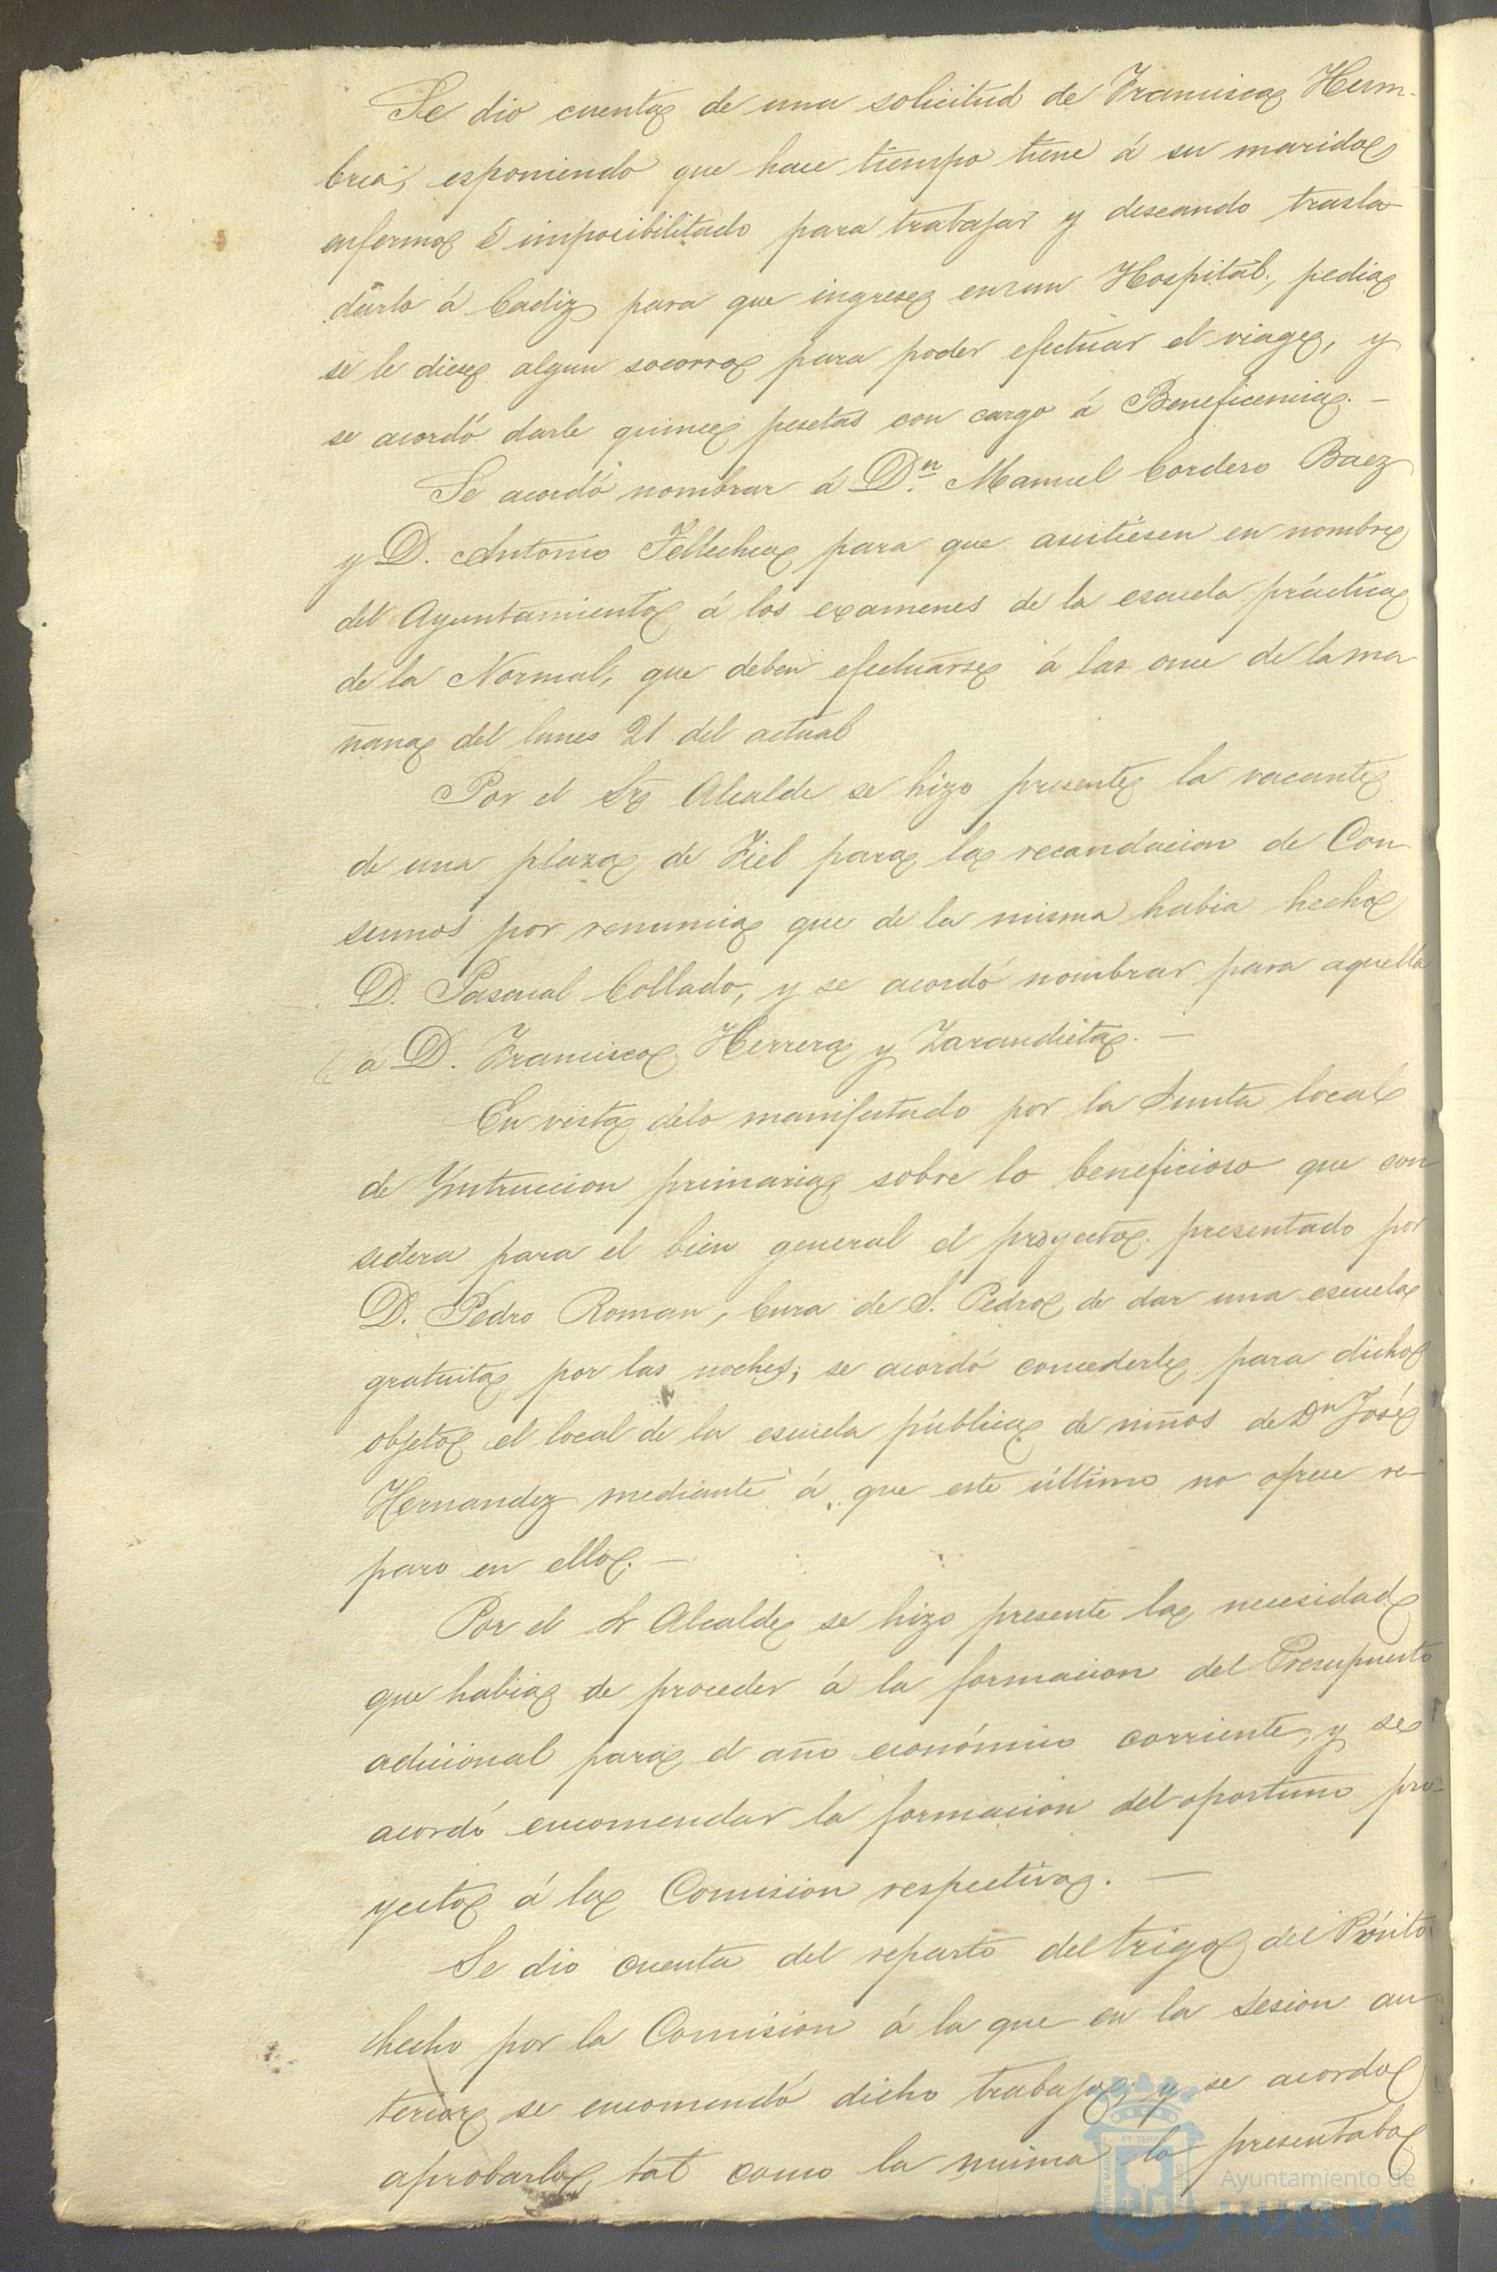 Se dio cuenta de una solicitud de Francisca Hum-
bria, esponiendo que hace tiempo tiene á su marido
enfermo é imposibilitado para trabajar y deseando trasla-
darlo á Cadiz para que ingrese en un Hospital, pedia
se le diese algun socorro para poder efectuar el viage, y
se acordó darle quince pesetas con cargo á Beneficencia. —
Se acordó nombrar á Dn. Manuel Cordero Baez
y D. Antonio Tellechea para que asistiesen en nombre
del Ayuntamiento á los examenes de la escuela práctica
de la Normal, que deben efectuarse á las once de la ma
ñana del lunes 21 del actual
Por el Sr Alcalde se hizo presente la vacante
de una plaza de Fiel para la recaudacion de Con
sumos por renuncia que de la misma habia hecho
D. Pascual Collado, y se acordó nombrar para aquella
á D. Francisco Herrera y Zarandieta. —
En vista delo manifestado por la Junta local
de Yntruccion primaria sobre lo beneficioso que con
sidera para el bien general el proyecto presentado por
D. Pedro Roman, Cura de S. Pedro de dar una escuela
gratuita por las noches; se acordó concederle para dicho
objeto el local de la escuela pública de niños de Dn José
Hernandez mediante á que este último no ofrece re-
paro en ello. —
Por el Sr Alcalde se hizo presente la necesidad
que habia de proceder á la formacion del Presupuesto
adicional para el año económico corriente, y se
acordó encomendar la formacion del oportuno pro-
yecto á la Comision respectiva. —
Se dio cuenta del reparto del trigo del Pósito
hecho por la Comision á la que en la sesion an
terior se encomendó dicho trabajo, y se acordo
aprobarlo, tal como la misma lo presentaba
Ayuntamiento de
HUELVA